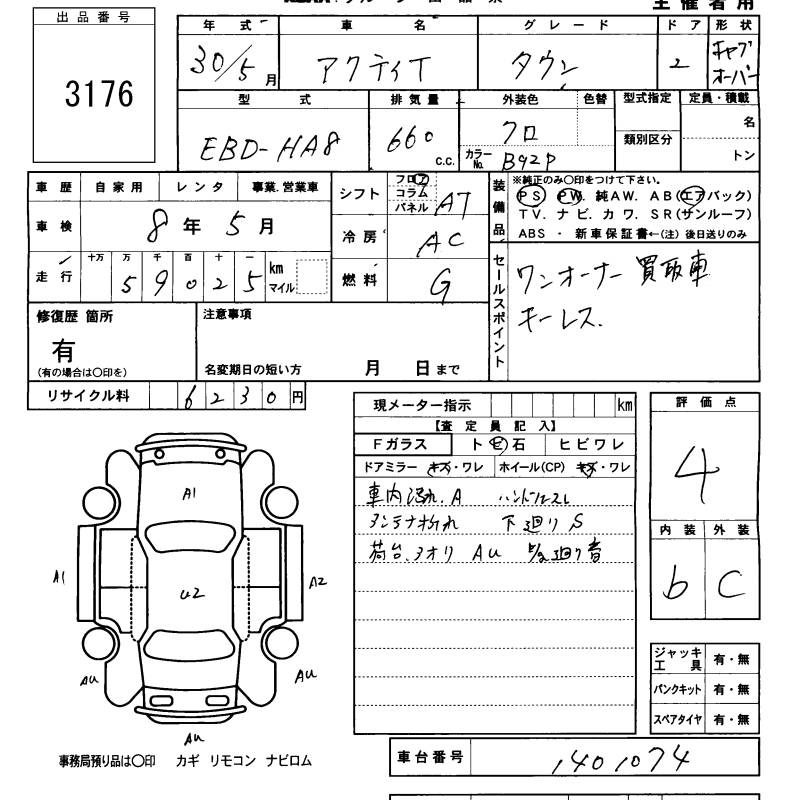 主催者用
出品番号
3176
年式 車名 グレード ドア 形状
30/5月 アクティT タウン 2 キャブオーバー
型式 排気量 外装色 色替 型式指定 定員・積載
EBD-HA8 660 c.c. クロ 類別区分 名
カラーNo. B92P トン
車歴 自家用 レンタ 事業.営業車
シフト フロア コラム パネル AT
装備品 ※純正のみ〇印をつけて下さい。
PS PW. 純AW. AB(エアバック)
TV. ナビ. カワ. SR(サンルーフ)
ABS ・ 新車保証書←(注) 後日送りのみ
車検 8年 5月
冷房 AC
走行 十万 万 千 百 十 一
59025 km マイル
燃料 G
セールスポイント
ワンオーナー 買取車
キーレス.
修復歴 箇所
有
(有の場合は〇印を)
注意事項
名変期日の短い方 月 日まで
リサイクル料 6230円
現メーター指示 km
【査定員記入】
Fガラス ト ビ 石 ヒビワレ
ドアミラー キズ・ワレ ホイール(CP) キズ・ワレ
車内汚れ.A ハンドルスレ
アンテナ折れ 下廻りS
荷台.アオリ AU 廻り音
評価点
4
内装 外装
b C
A1
U2
A1
A2
AU
AU
AU
ジャッキ工具 有・無
パンクキット 有・無
スペアタイヤ 有・無
事務局預り品は〇印 カギ リモコン ナビロム
車台番号 1401074